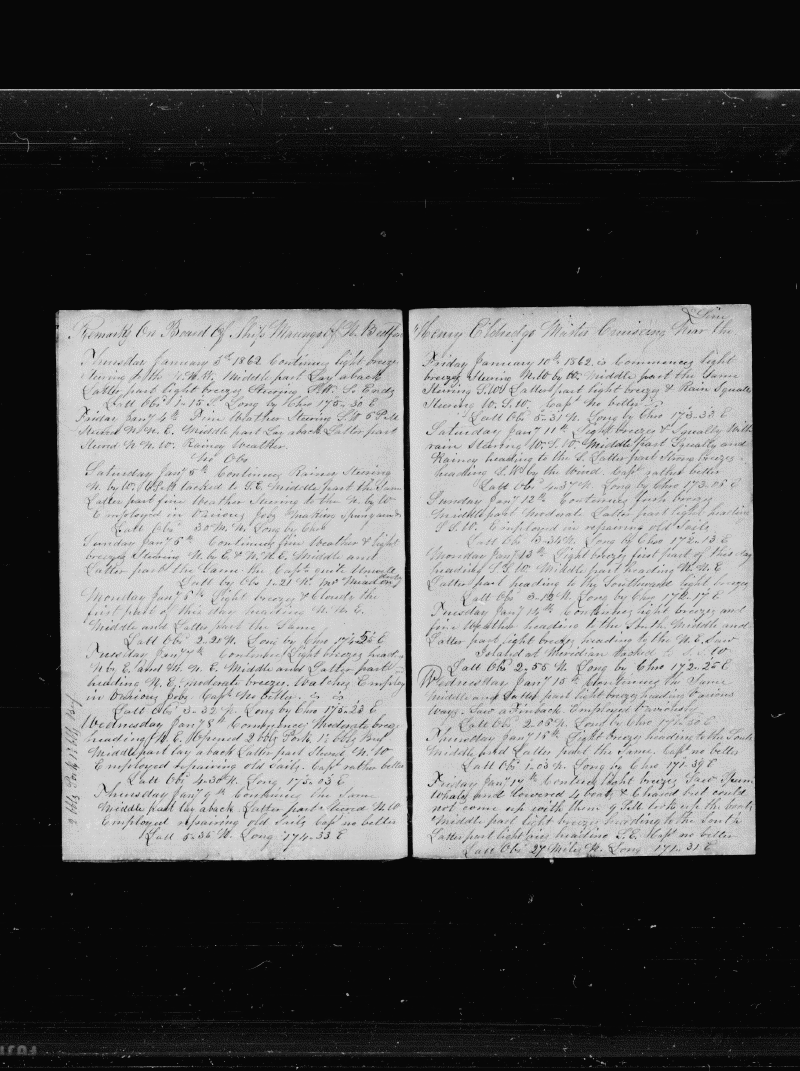 Remarks On Board Of Ship Navy of N. Bedford
Thursday January 3th 1862 Continues light breezes
Steering to the N.W. Middle part Lay aback
Latter part light breezes Steering S.W. So Ends
Latt Obs 1-15 S. Long by Chro 175-30 E
Friday Jany 4th Fine Weather Steering S.W 5 P.M.
Steered N.N.E. Middle part Lay aback Latter part
Steered N N.W. Rainy Weather.
No Obs
Saturday Jany 5th Continues Rainy Steering
N. by W. P.M tacked to S.E. Middle part the Same
Latter part fine Weather Steering to the N. by W
Employed in Various Jobs Making Spunyarn
Latt Obs 30 M. N. Long by Chro
Sunday Jany 5th Continues fine Weather & light
breezes Steering N. by E & N.N.E. Middle and
Latter part the Same the Capt quite Unwell
Latt by Obs 1-21 N.
Monday Jany 6th Light breezes & Cloudy the
first part of this day heading N.N.E.
Middle and Latter part the Same
Latt Obs 2-22 N. Long by Chro 174-55 E
Tuesday Jany 7th Continues Light breezes heading
N. by E. and N.N.E. Middle and Latter part
heading N.E. moderate breezes. Watches Employ
in Various Jobs Capt No better
Latt Obs 3-32 N. Long by Chro 173-23 E
Wednesday Jany 8th Commences Moderate breezes
heading N.E. Opened 2 bbls Pork 1 bbls Beef
Middle part lay aback Latter part Steered N.W
Employed repairing old Sails. Capt rather better
Latt Obs 4-30 N. Long 173-03 E
Thursday Jany 9th Continues the Same
Middle part lay aback. Latter part Steered N.W
Employed repairing old Sails Capt no better
Latt 5-35 N. Long 174-33 E
2 bbls Pork 1 bbls Beef
Line
Henry Eldredge Master Cruising Near the
Friday January 10th 1862 is Commences light
breezes Steering N.W by W. Middle part the Same
Steering S.W Latter part light breezes & Rain Squalls
Steering W.S.W. Capt no better
Latt Obs 5-31 N. Long by Chro 173-33 E
Saturday Jany 11th Light breezes & Squally With
rain Steering W.S.W. Middle part Squally and
Rainy heading to the S. Latter part Strong breezes
heading S.W by the Wind. Capt rather better
Latt Obs 4-37 N. Long by Chro 173-05 E
Sunday Jany 12th Continues fresh breezes
Middle part Moderate Latter part light heading
S.S.W. Employed in repairing old Sails
Latt Obs 3-34 N. Long by Chro 172-13 E
Monday Jany 13th Light breezes first part of this day
heading S.S.W. Middle part heading N.N.E
Latter part heading to the Southward light breezes
Latt Obs 3-18 N. Long by Chro 172-17 E
Tuesday Jany 14th Continues light breezes and
fine Weather heading to the South Middle and
Latter part light breezes heading to the N.E. Saw
Island at Meridian tacked to S.S.W
Latt Obs 2-55 N. Long by Chro 172-25 E
Wednesday Jany 15th Continues the Same
Middle and Latter part light breezes heading Various
Ways. Saw a Finback Employed Variously
Latt Obs 2-05 N. Long by Chro 172-30 E
Thursday Jany 16th Light breezes heading to the South
Middle and Latter part the Same. Capt no better
Latt Obs 1-03 N. Long by Chro 171-39 E
Friday Jany 17th Continues light breezes Saw Sperm
Whales and lowered 4 boats & Chased but could
not come up with them 4 P.M took up the boats
Middle part light breezes heading to the South
Latter part light airs heading S.E. Capt no better
Latt Obs 27 Miles N. Long 171-31 E